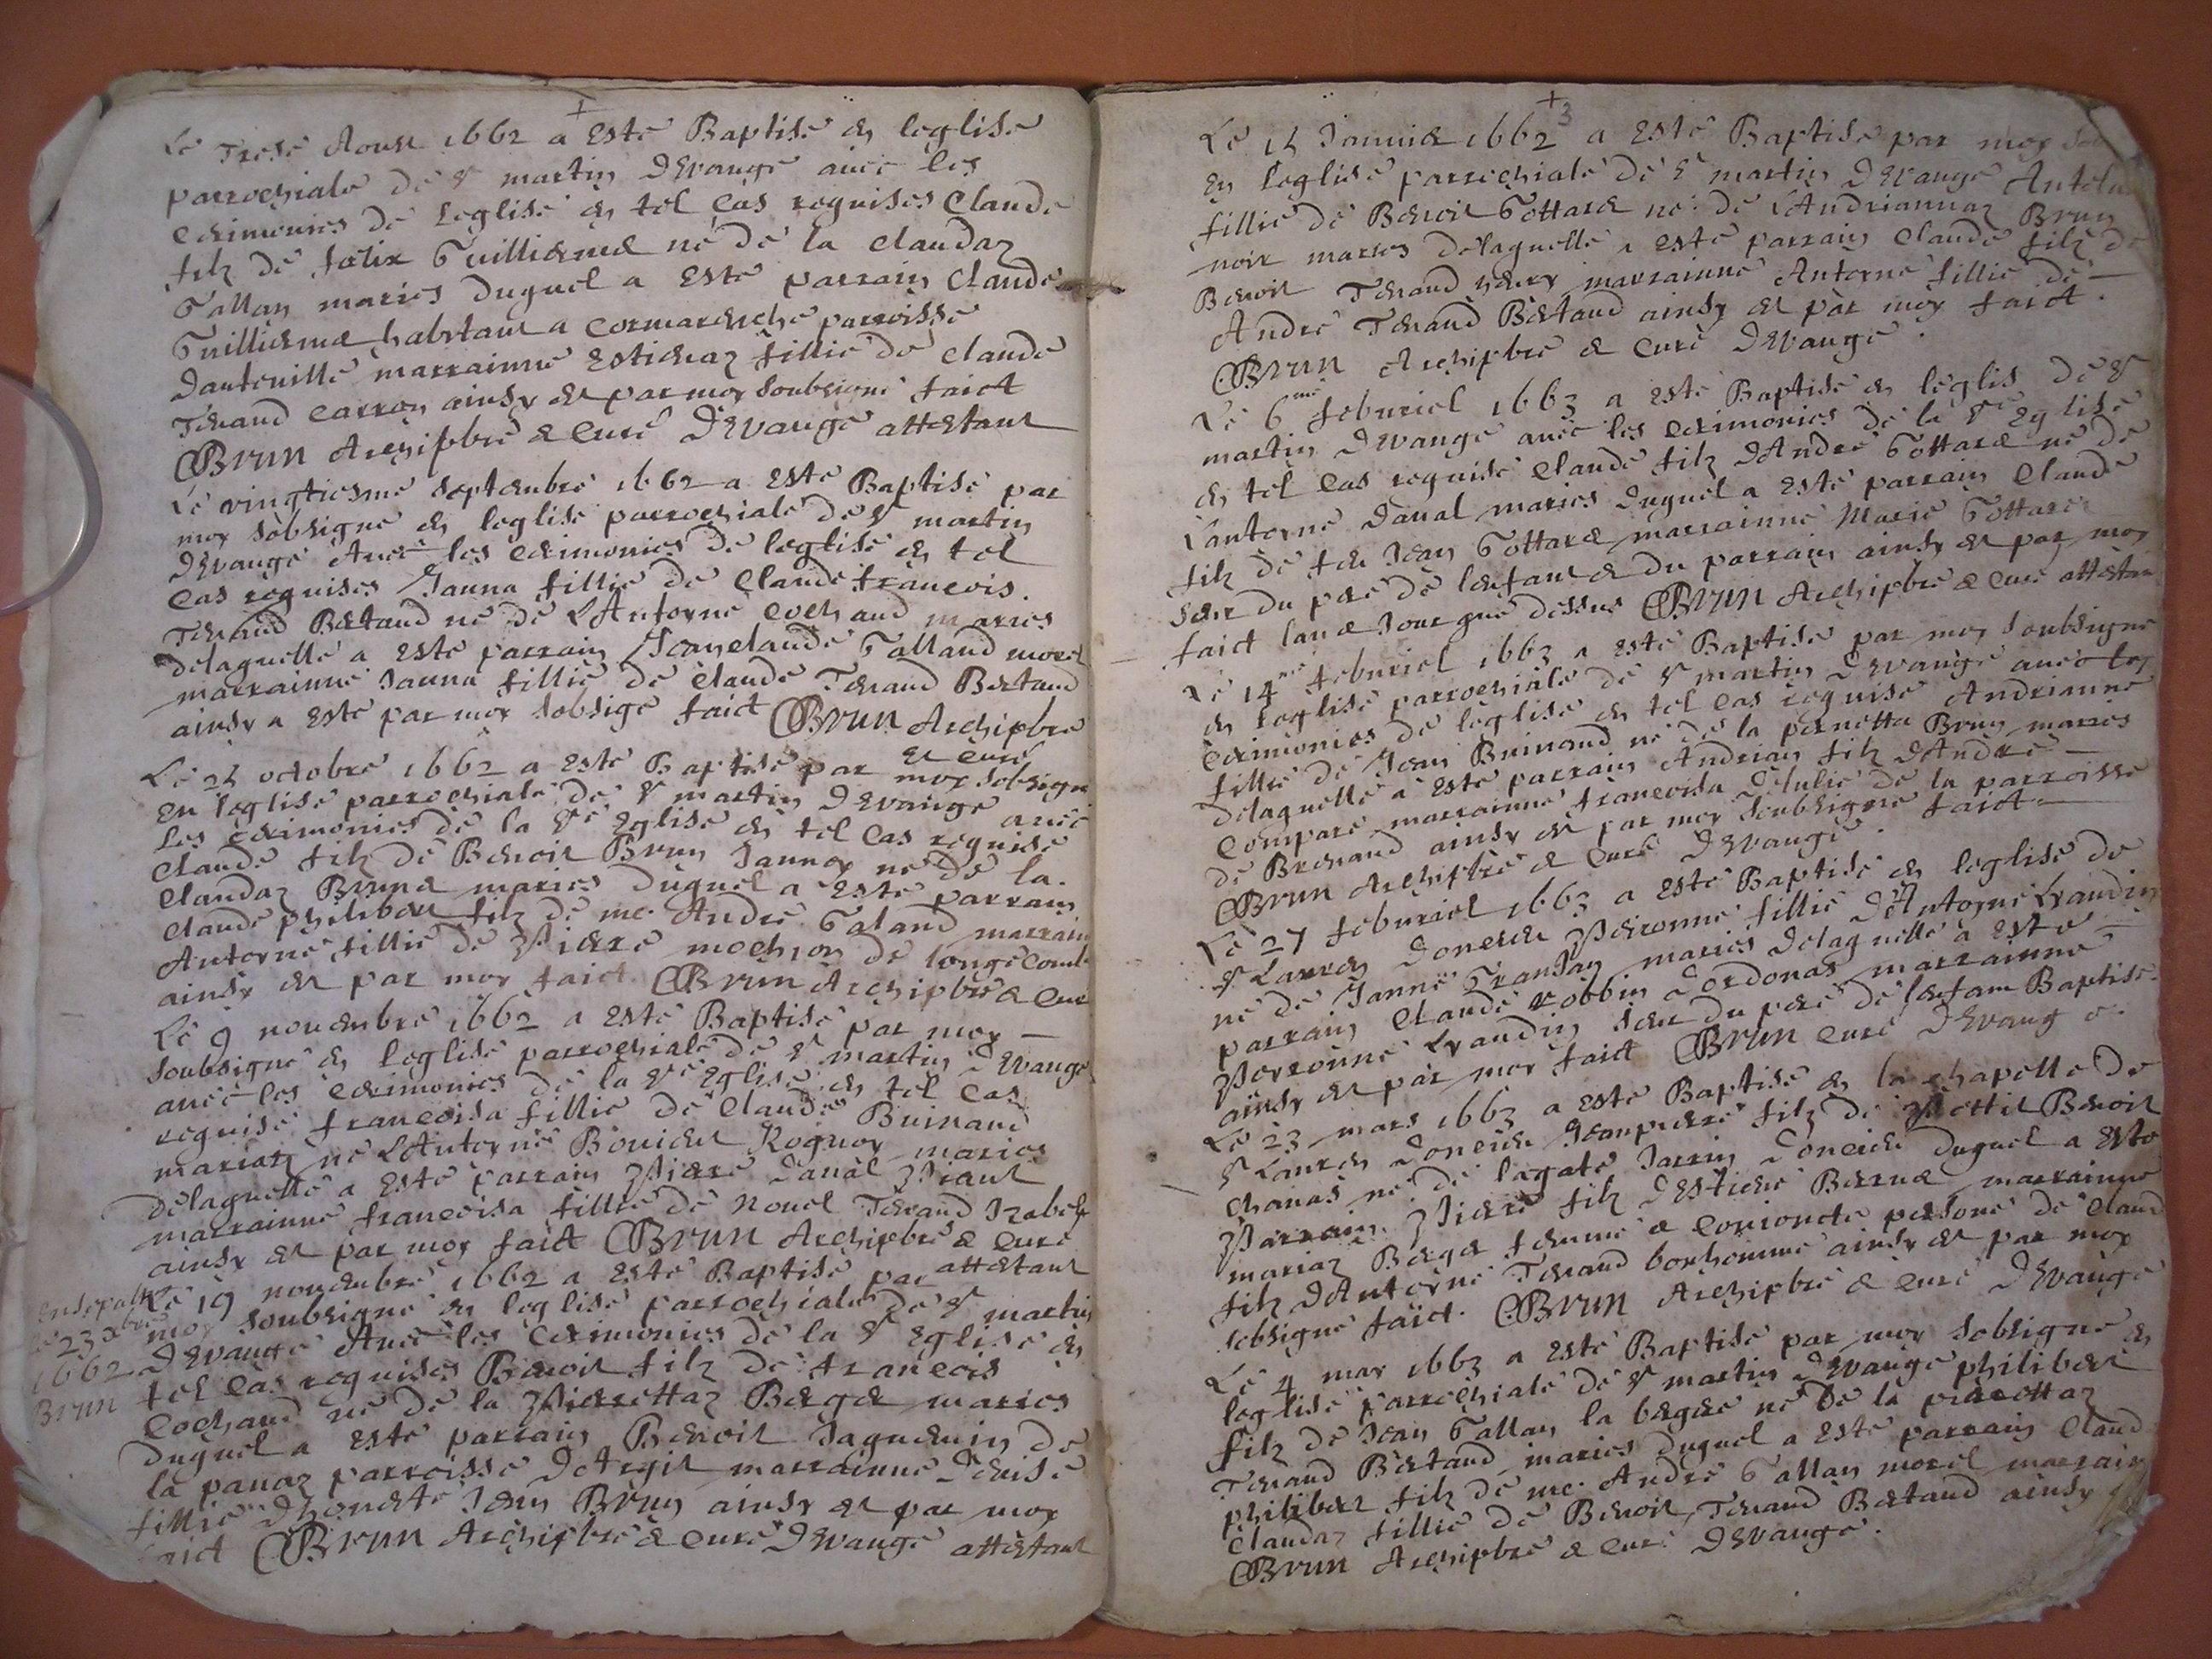 +
Le trese Aoust 1662 a esté Baptisé en leglise
parrochiale de st martin D'Evange avec les
Cerimonies de Leglise en tel Cas requises Claude
filz de foelix Guillierme né de la Claudaz
Gallan maries duquel a esté parrain Claude
Guillierme habitant a Cormareiche parroisse
dauteville marraine Estienaz fillie de Claude
Tenand Carron ainsy est par moy soubsigné faict
Brun Archipbre & Curé D'Evange attestant
Le vingtiesme septembre 1662 a esté Baptisé par
moy sobsigne en leglise parrochiale de st martin
D'Evange Avec les Cerimonies de leglise en tel
Cas requises Janna fillie de Claude francois
Tenand Bertand né de L'Antoyne Cochand maries
delaquelle a esté parrain Jeanclaude Galland morel
marrainne Janna fillie de Claude Tenand Bertand
ainsy a esté par moy sobsigé faict Brun Archipbre
et curé
Le 25 octobre 1662 a esté Baptisé par moy sobsigne
en leglise parrochiale de st martin D'Evange avec
les Cerimonies de la ste Eglise en tel Cas requise
Claude filz de Benoit Brun Jannoy né de la
Claudaz Brune maries duquel a esté parrain
Claude philibert filz de me. André Galand marrain
Antoyne fillie de Pierre mochon de longecomb
ainsy est par moy faict Brun Archipbre & Curé
Le 9 novembre 1662 a esté Baptisé par moy
soubsigné en leglise parrochiale de st martin D'Evange
avec les Cerimonies de la ste Eglise en tel Cas
requise francoisa fillie de Claude Buinand
mariatz né L'Antoyne Bouier Roquoy maries
delaquelle a esté parrain Pierre Daval Piant
marrainne francoisa fillie de Nouel Tenand Izabel
ainsy est par moy faict Brun Archipbre & Curé
attestant
Le 19 novembre 1662 a esté Baptisé par
moy soubsigné en leglise parrochiale de st martin
D'Evange Avec les Cerimonies de la st Eglise en
tel Cas requises Benoit filz de francois
Cochand né de la Pierrettaz Berger maries
duquel a esté parrain Benoit Jaquemin de
la panaz parroisse D'Argit marrainne Denise
fillie D'honeste Jean Brun ainsy est par moy
faict Brun Archipbre & Curé D'Evange attestant
ensepalt
le 23 xbre
1662
Brun
+
3
Le 15 Janvier 1662 a esté Baptisé par moy sob
En leglise parrochiale de st martin D'Evange
fillie de Benoit Gottare né de L'Andriannaz Brun
noir maries delaquelle a esté parrain Claude filz de
Benoit Tenand marrainne Antoyne fillie de
André Tenand Bertand ainsy est par moy faict.
Brun Archipbre & Curé D'Evange.
Le 6me feburiel 1663 a esté Baptisé en leglis de st
martin D'Evange avec les Cerimonies de la ste Eglise
en tel Cas requise Claude filz D'André Gottare né de
L'antoyne Daval maries duquel a esté parrain Claude
filz de feu Jean Gottare marrainne Marie Gottare
seur du pere de lenfant & du parrain ainsy est par moy
faict lan & Jour que dessus Brun Archipbre & Curé attestan
Le 14me feburiel 1663 a esté Baptisé par moy soubsigné
en leglise parrochiale de st martin D'Evange avec les
Cerimonies de leglise en tel Cas requise Andrianne
fillie de Jean Buinand né de la pernetta Brun maries
delaquelle a esté parrain Andrian filz D'André
Compare marrainne francoisa de la parroisse
de Brenand ainsy est par moy soubsigné faict
Brun Archipbre & Curé D'Evange.
Le 27 feburiel 1663 a esté Baptisé en leglise de
st Lauren Doncieu Peronne fillie D'Antoyne Lyaudin
né de Janne Gransan maries delaquelle a esté
parrain Claude robbin Dordonas marrainne
Perronne Lyaudin seur du pere de lenfant Baptisé.
ainsy est par moy faict Brun Curé D'Evange.
Le 23 mars 1663 a esté Baptisé en la chapelle de
st Lauren Doncieu Jeanpierre filz de Pettit Benoit
Chanas né de lagate Jarrin Doncieu duquel a esté
Parrain Pierre filz D'Estiene Berrue marrainne
mariaz Berger femme & Conioncte persone de Claud
filz D'Antoyne Tenand bonhomme ainsy est par moy
sobsigné faict. Brun Archipbre & Curé D'Evange
Le 4 may 1663 a esté Baptisé par moy sobsigné en
leglise parrochiale de st martin D'Evange philibert
filz de Jean Gallan la bergere né de la pierrettaz
Tenand Bertand maries duquel a esté parrain Claud
philibert filz de me. André Gallan morel marrain
Claudaz fillie de Benoit Tenand Bertand ainsy
Brun Archipbre & Curé D'Evange.